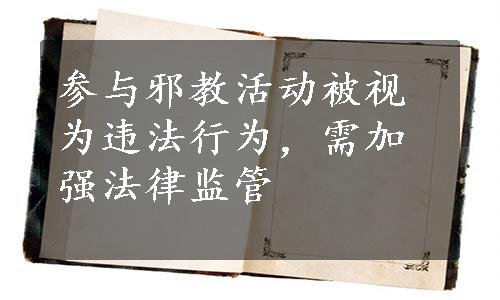 参与邪教活动被视
为违法行为，需加
强法律监管